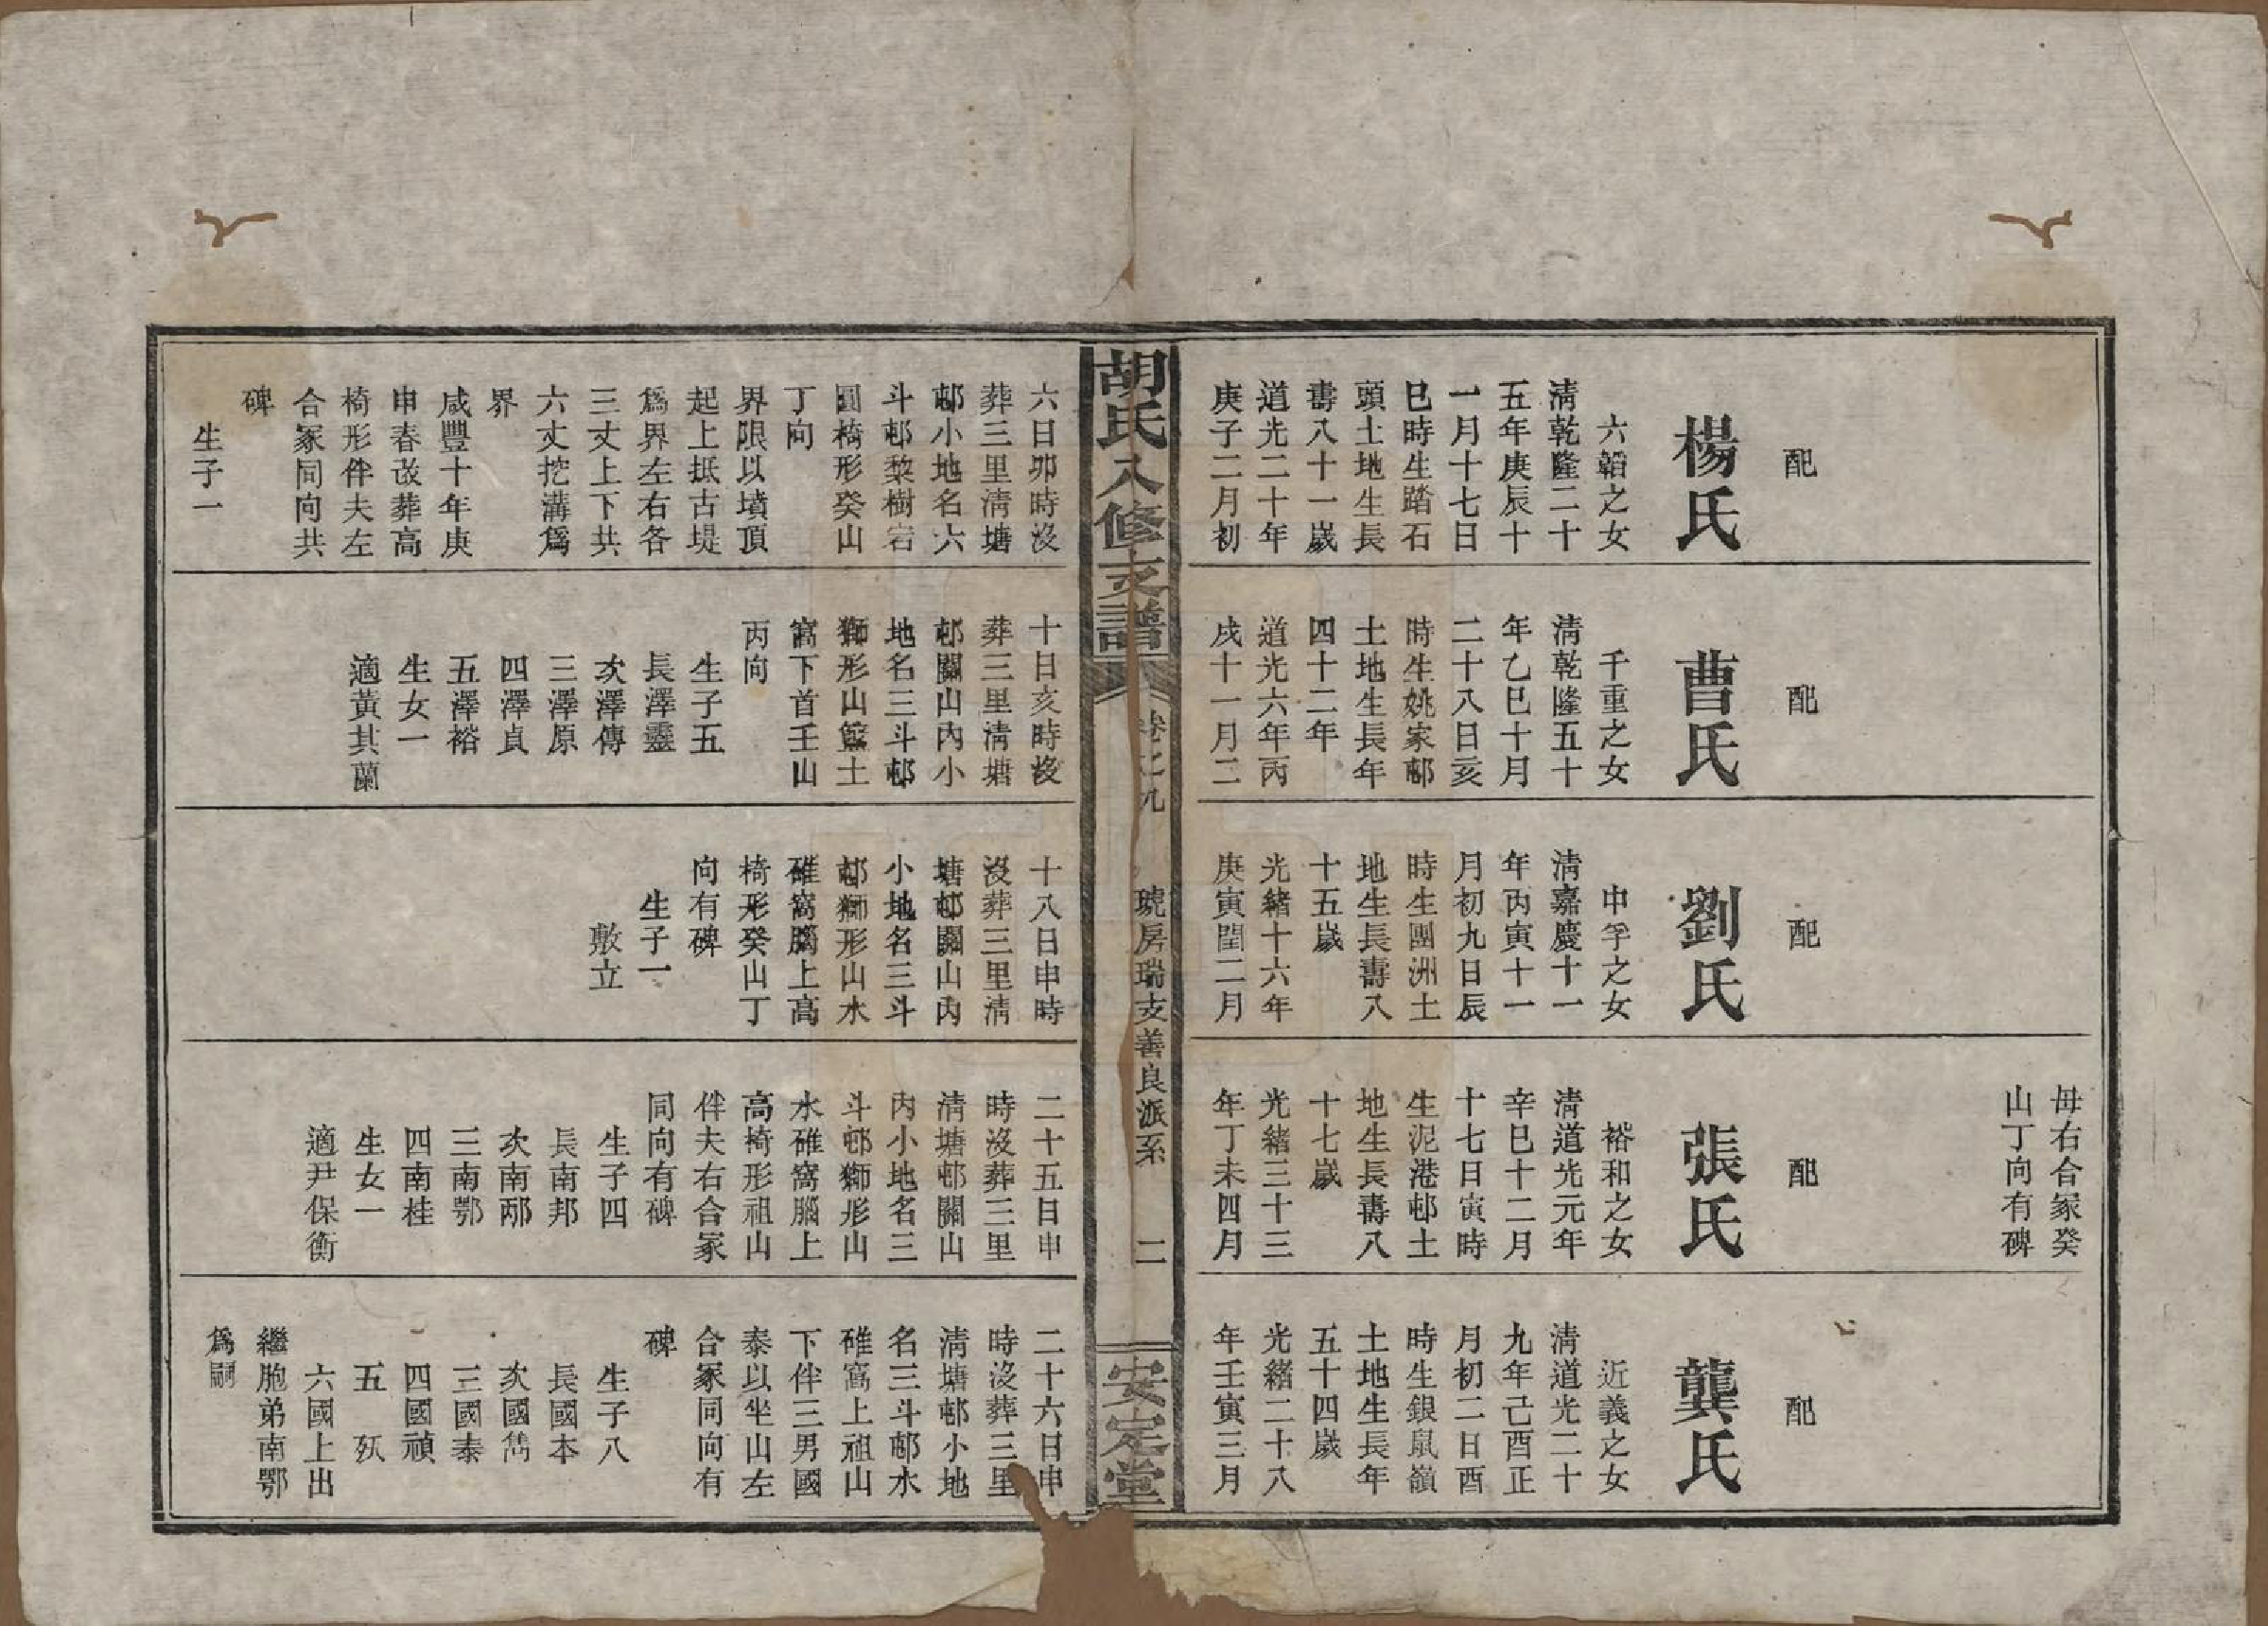 配
楊氏
六韜之女
淸乾隆二十
五年庚辰十
一月十七日
巳時生踏石
頭土地生長
壽八十一歲
道光二十年
庚子二月初
六日卯時沒
葬三里淸塘
邨小地名六
斗邨黎樹宕
圓椅形癸山
丁向
界限以墳頂
起上抵古堤
爲界左右各
三丈上下共
六丈挖溝爲
界
咸豐十年庚
申春改葬高
椅形伴夫左
合冢同向共
碑
生子一
配
曹氏
千重之女
淸乾隆五十
年乙巳十月
二十八日亥
時生姚家邨
土地生長年
四十二年
道光六年丙
戌十一月二
十日亥時歿
葬三里淸塘
邨關山內小
地名三斗邨
獅形山籃土
窩下首壬山
丙向
生子五
長澤靈
次澤傳
三澤原
四澤貞
五澤裕
生女一
適黃其蘭
配
劉氏
中孚之女
淸嘉慶十一
年丙寅十一
月初九日辰
時生團洲土
地生長壽八
十五歲
光緒十六年
庚寅閏二月
十八日申時
沒葬三里淸
塘邨關山內
小地名三斗
邨獅形山水
碓窩腦上高
椅形癸山丁
向有碑
生子一
敷立
母右合冢癸
山丁向有碑
配
張氏
裕和之女
淸道光元年
辛巳十二月
十七日寅時
生泥港邨土
地生長壽八
十七歲
光緒三十三
年丁未四月
二十五日申
時沒葬三里
淸塘邨關山
內小地名三
斗邨獅形山
水碓窩腦上
高椅形祖山
伴夫右合冢
同向有碑
生子四
長南邦
次南邴
三南鄂
四南桂
生女一
適尹保衡
配
龔氏
近義之女
淸道光二十
九年己酉正
月初二日酉
時生銀鼠嶺
土地生長年
五十四歲
光緒二十八
年壬寅三月
二十六日申
時沒葬三里
淸塘邨小地
名三斗邨水
碓窩上祖山
下伴三男國
泰以坐山左
合冢同向有
碑
生子八
長國本
次國雋
三國泰
四國禎
五 殀
六國上出
繼胞弟南鄂
爲嗣
胡氏八修支譜
卷之九
琥房瑞支善良派系
二
安定堂